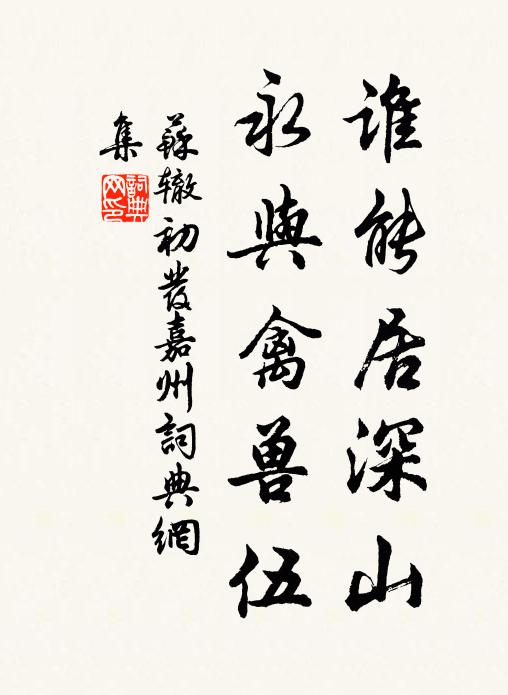 誰能居深山
永與禽兽伍
蘇辙初發嘉州詞典網
集
詞典
网印